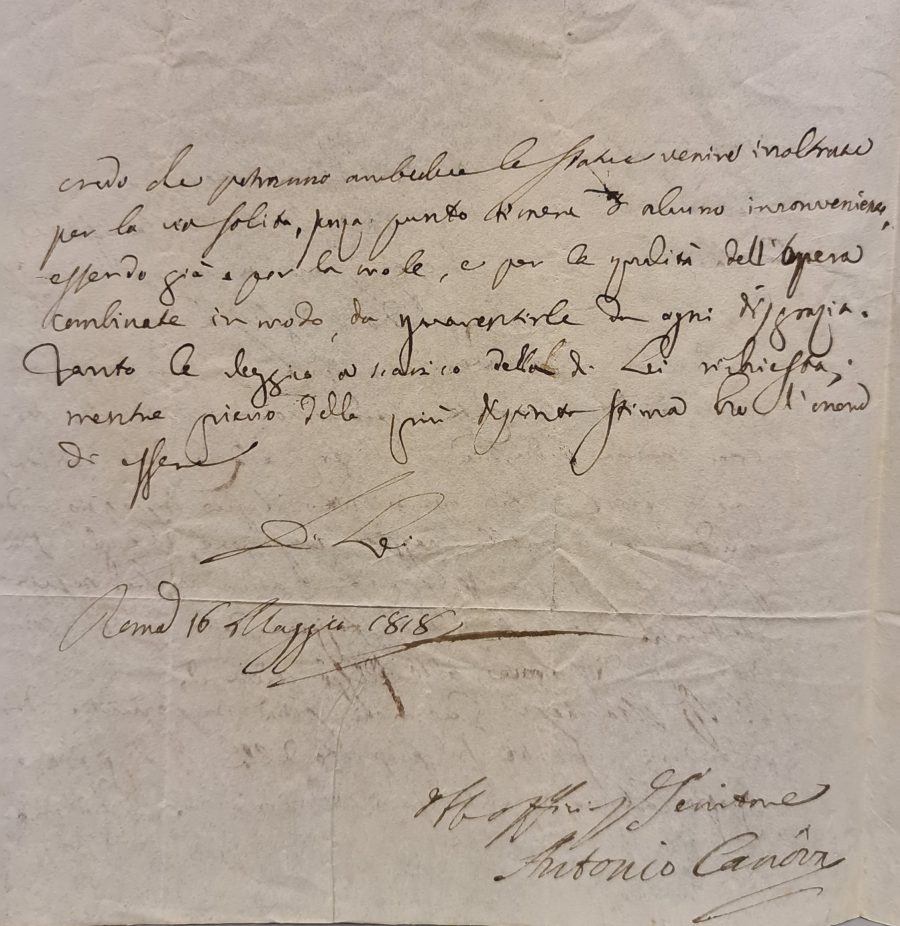 credo che potranno ambedue le statue venire inoltrate
per la via solita, senza punto temere d' alcuno inconveniente,
essendo già e per la mole, e per la qualità dell' opera
combinate in modo, da guarentirle da ogni disgrazia.
Tanto le deggio a scarico della di Lei richiesta;
mentre pieno della più distinta stima ho l' onore
di essere
Di Lei
Roma 16 Maggio 1818
Servitore
Antonio Canova